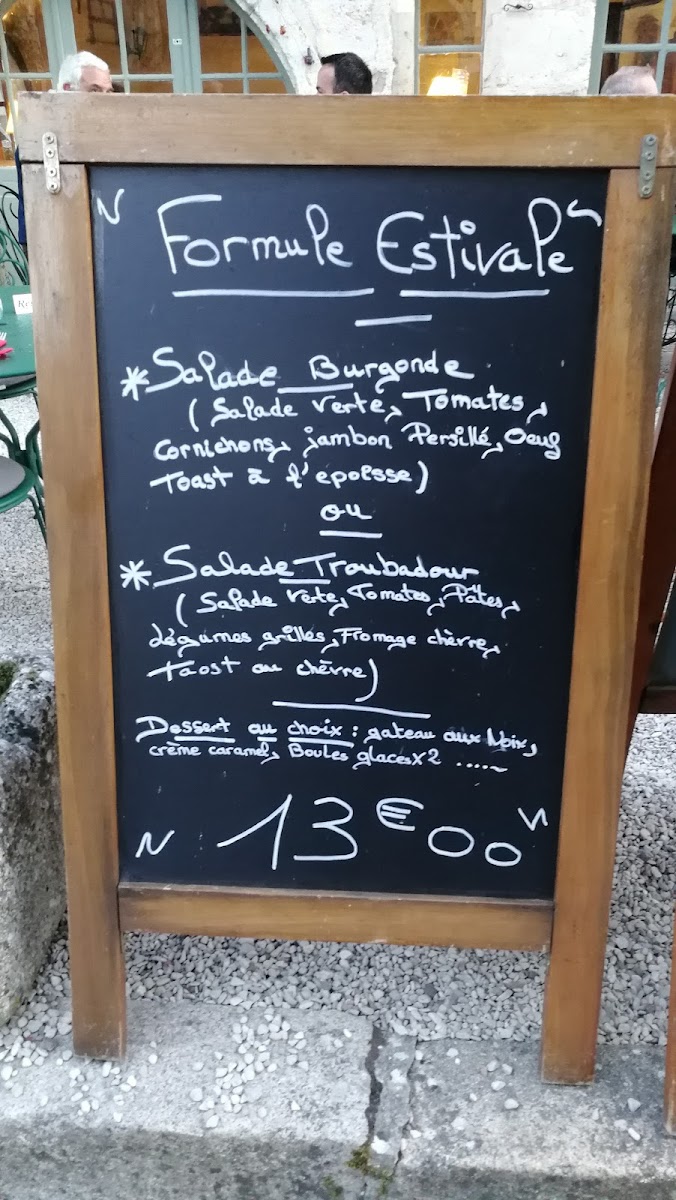 Formule Estivale
*Salade Burgonde
(Salade verte, Tomates,
cornichons, jambon Persillé, Oeuf
Toast à l'epoisse)
ou
*Salade Troubadour
(Salade verte, Tomates, Pâtes,
légumes grilles, Fromage chèvre,
Taost au chèvre)
Dessert au choix : gateau aux Noix,
crème caramel, Boules glacesx2 .....
13€00